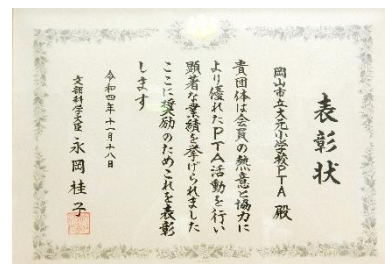 表彰状
岡山市立大元小学校PTA 殿
貴団体は会員の熱意と協力に
より優れたPTA活動を行い
顕著な業績を挙げられました
ここに奨励のためこれを表彰
します
令和四年十一月十八日
文部科学大臣 永岡桂子